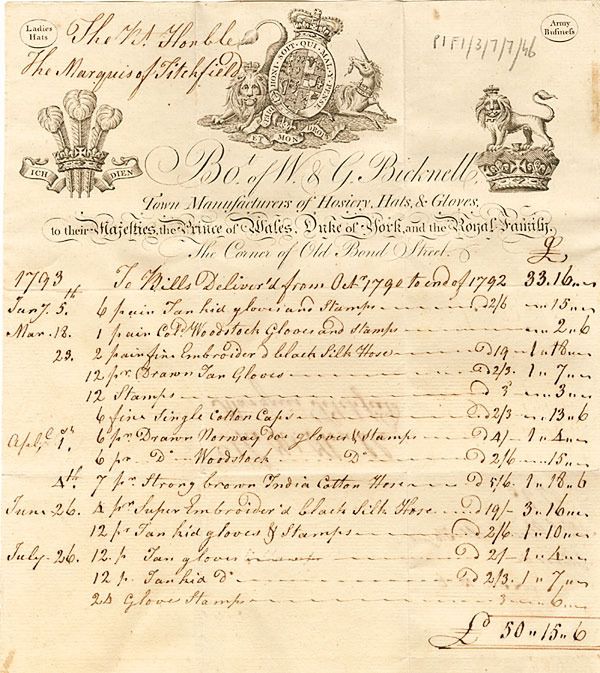 Ladies
Hats
Army
Business
The Rt. Honble
The Marquis of Titchfield
P1F1/3/7/7/46
HONI SOIT QUI MAL Y PENSE
DIEU ET MON DROIT
ICH DIEN
Bot. of W. & G. Bicknell,
Town Manufacturers of Hosiery, Hats, & Gloves,
to their Majesties, the Prince of Wales, Duke of York, and the Royal Family,
The Corner of Old Bond Street.
£
1793 To Bills Deliver'd from Octr. 1790 to end of 1792 33.16 "
Jany. 5th 6 pair Tan kid gloves and Stamps @ 2/6 " 15 "
Mar. 18. 1 pair Cold. Woodstock Gloves and stamps " 2 " 6
23. 2 pair fine Embroider'd black Silk Hose @ 19 1 " 18 "
12 pr. Drawn Tan Gloves @ 2/3. 1 " 7 "
12 Stamps @ 3 " 3 "
6 fine Single Cotton Caps @ 2/3 " 13 " 6
April 1st. 6 pr. Drawn Norway doe gloves & Stamps @ 4/ 1 " 4 "
6 pr. Do. Woodstock Do. @ 2/6 " 15 "
4th 7 pr Strong brown India Cotton Hose @ 5/6. 1 " 18 " 6
June 26. 4 pr Super Embroider'd black Silk Hose @ 19/ 3 " 16 "
12 pr Tan kid gloves & Stamps @ 2/6. 1 " 10 "
July 26. 12 pr Tan gloves @ 2/ 1 " 4 "
12 pr Tan kid Do @ 2/3. 1 " 7 "
24 Glove Stamps 3 " 6 "
£ 50 " 15 " 6